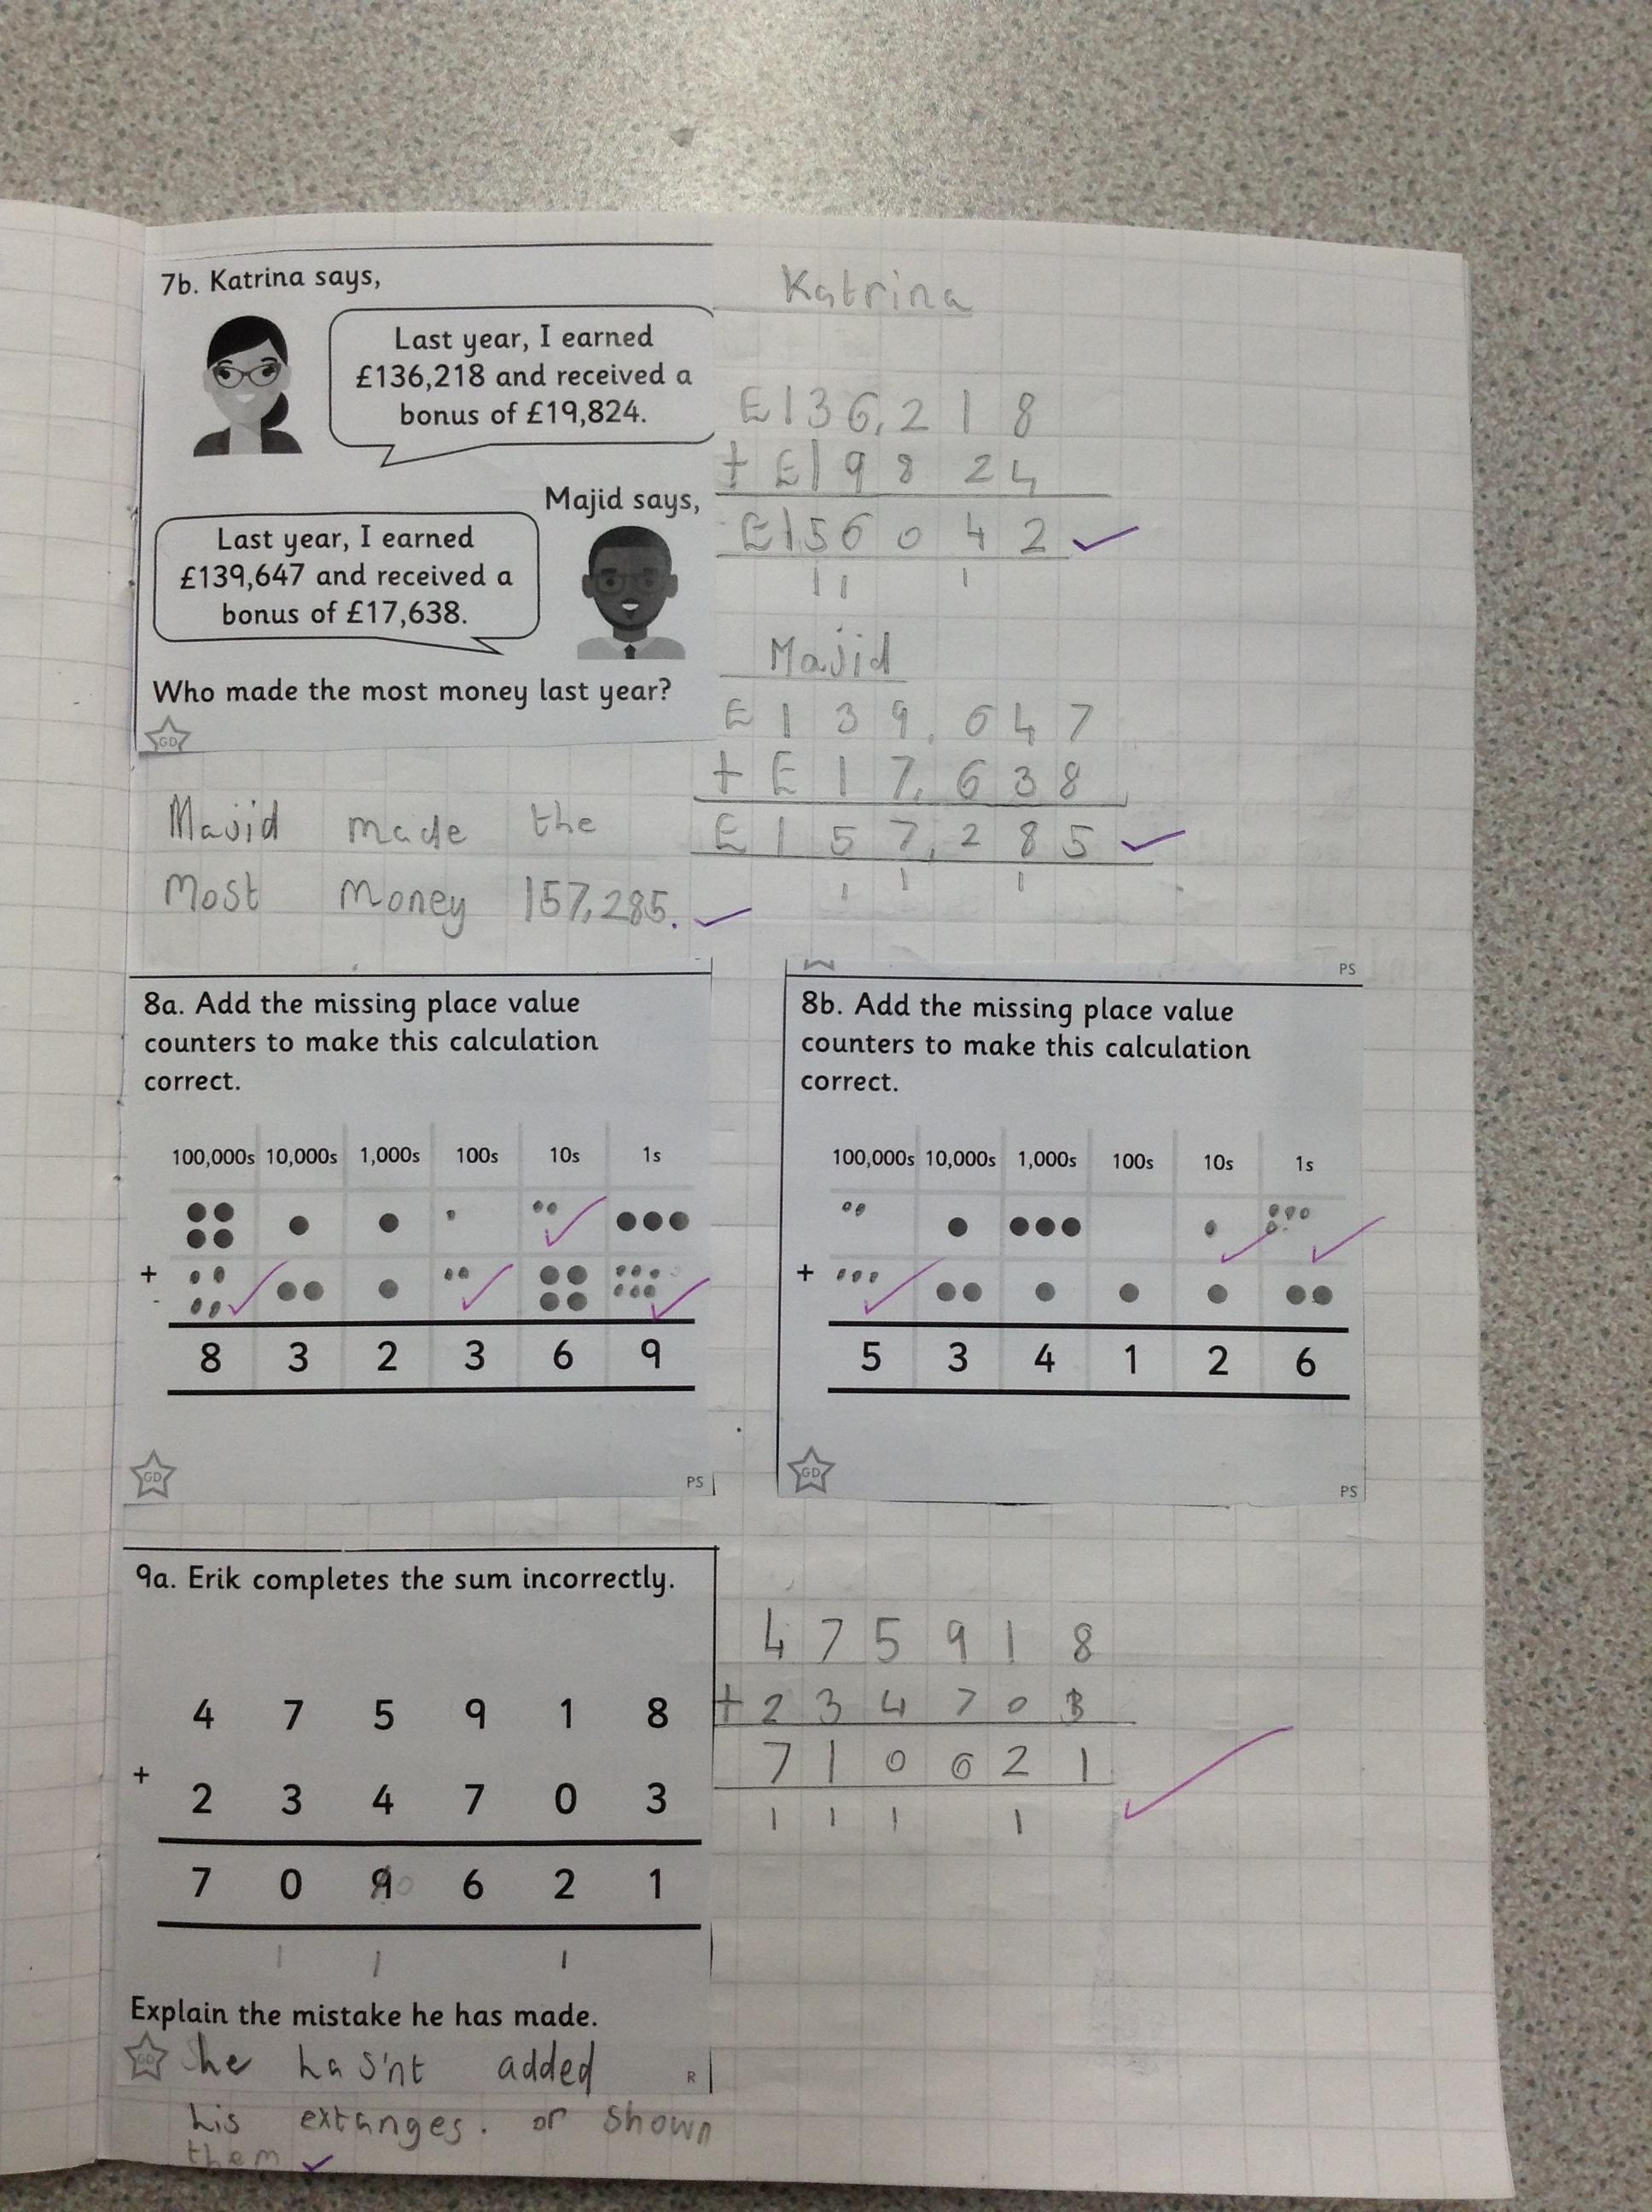 7b. Katrina says,
Last year, I earned
£136,218 and received a
bonus of £19,824.
Majid says,
Last year, I earned
£139,647 and received a
bonus of £17,638.
Who made the most money last year?
GD
Katrina
£136,218
+ £19824
£156042
1 1 1
Majid
£139,647
+ £17,638
£157,285
1 1 1
Majid made the
Most money 157,285.
8a. Add the missing place value
counters to make this calculation
correct.
100,000s 10,000s 1,000s 100s 10s 1s
+
8 3 2 3 6 9
GD PS
PS
8b. Add the missing place value
counters to make this calculation
correct.
100,000s 10,000s 1,000s 100s 10s 1s
+
5 3 4 1 2 6
GD PS
9a. Erik completes the sum incorrectly.
4 7 5 9 1 8
+
2 3 4 7 0 3
7 0 9 0 6 2 1
1 1 1
Explain the mistake he has made.
GD he has'nt added R
his extanges. or shown
them
4 7 5 9 1 8
+ 2 3 4 7 0 3
7 1 0 6 2 1
1 1 1 1